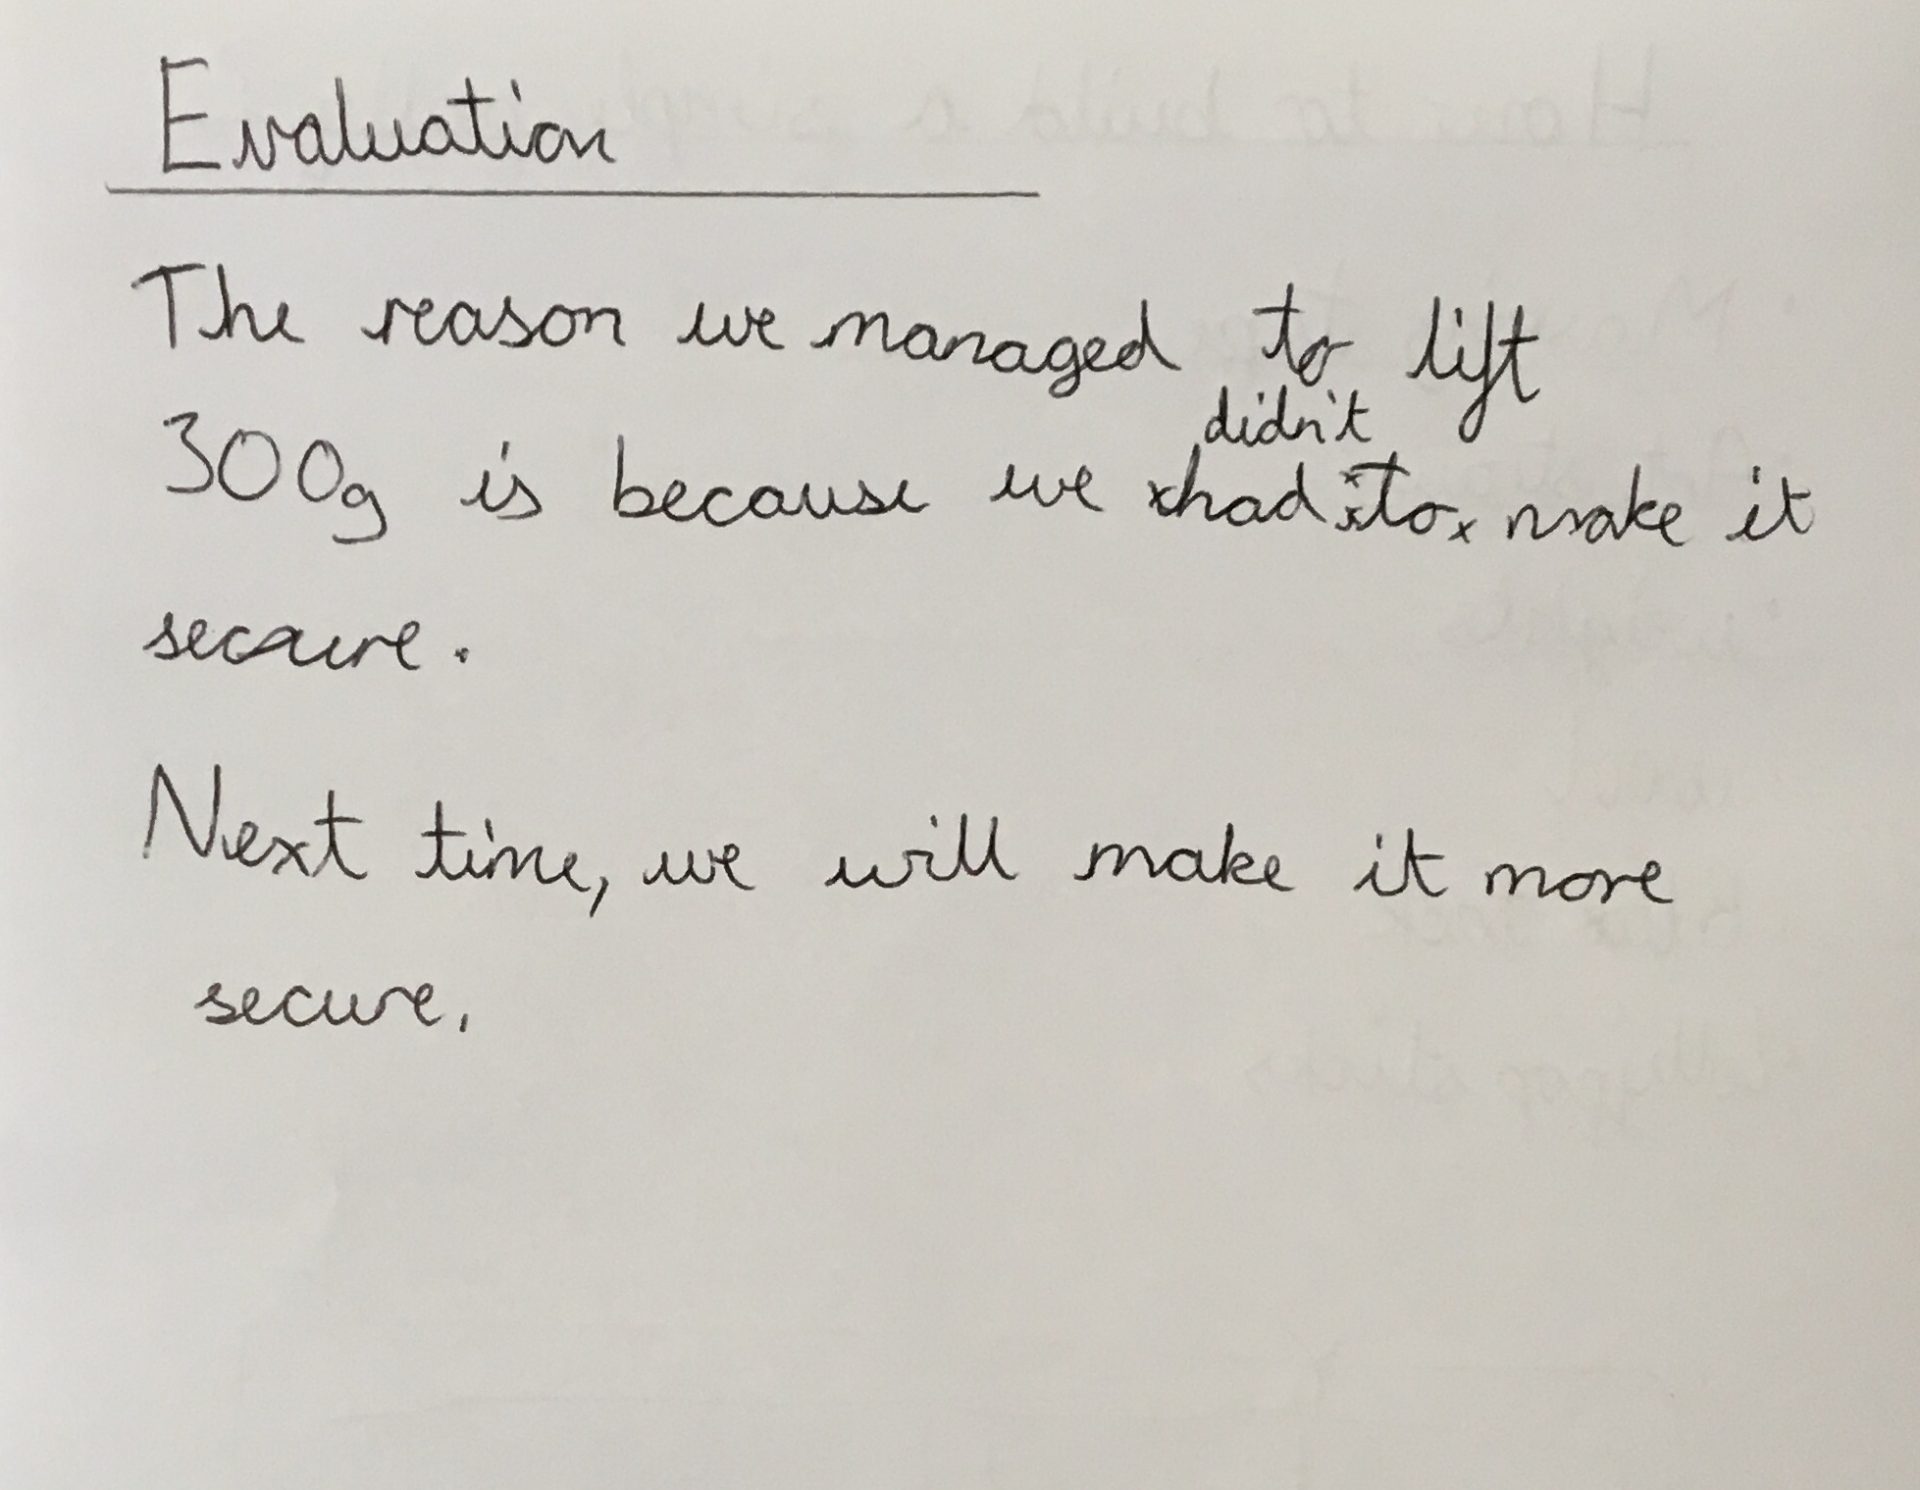 Evaluation
The reason we managed to lift
didn't
300g is because we xhad to x make it
secure.
Next time, we will make it more
secure.